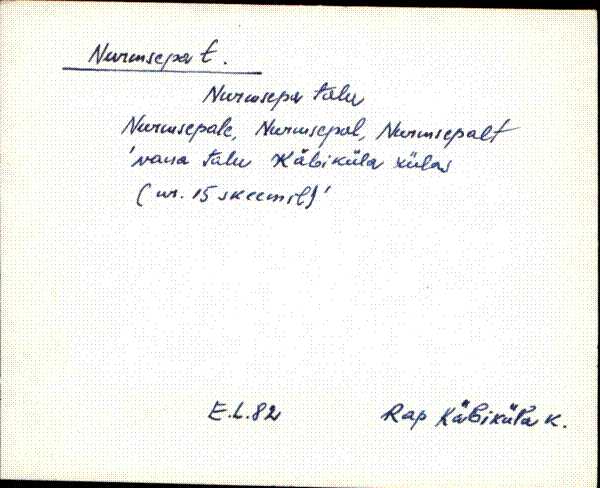 Nurmsepa t.
Nurmsepa talu
Nurmsepale, Nurmsepal, Nurmsepalt
'vana talu Käbiküla külas
(nr. 15 skeemil)'
E.L.82 Rap Käbiküla k.